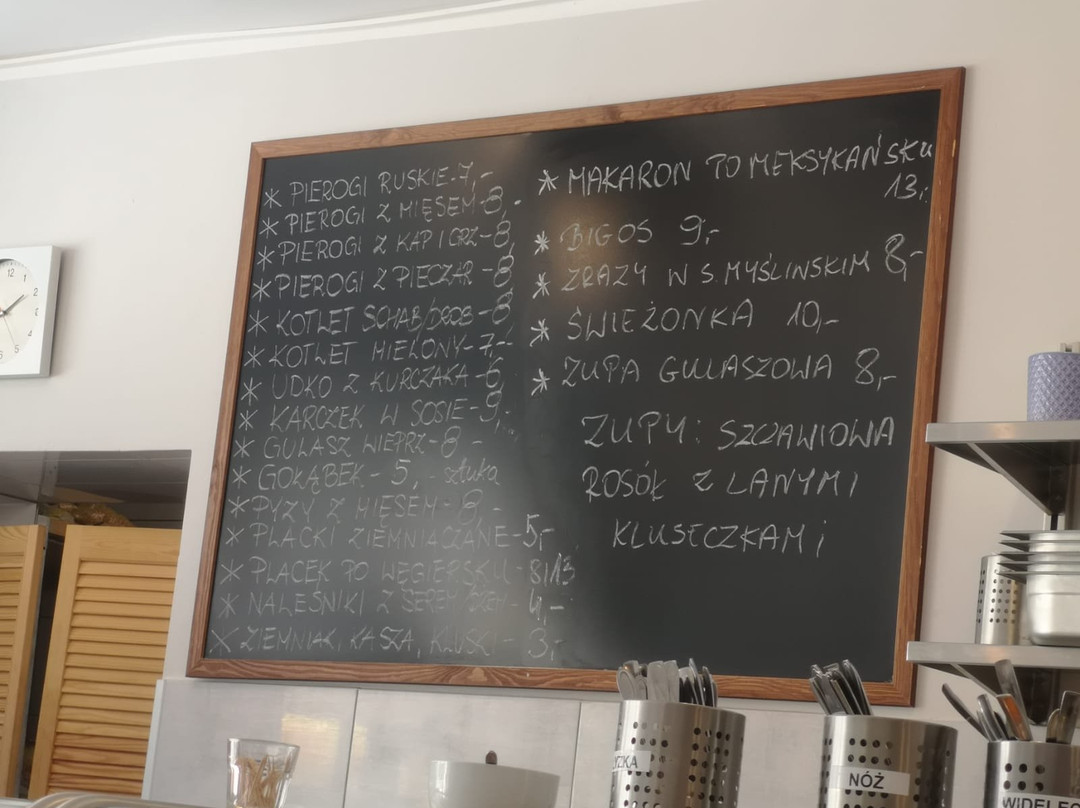 * PIEROGI RUSKIE-7,-
* PIEROGI Z MIĘSEM-8,-
* PIEROGI Z KAP I GRZ-8,
* PIEROGI Z PIECZAR-8
* KOTLET SCHAB/DROB-8,
* KOTLET MIELONY-7,-
* UDKO Z KURCZAKA-6,
* KARCZEK W SOSIE-9,-
* GULASZ WIEPRZ-8-
* GOŁĄBEK-5,- sztuka
* PYZY Z MIĘSEM-8-
* PLACKI ZIEMNIACZANE-5,-
* PLACEK PO WĘGIERSKU-8/13
* NALEŚNIKI Z SEREM-4,-
* ZIEMNIAK, KASZA, KLUSKI-3,-
* MAKARON PO MEKSYKAŃSKU
13,-
* BIGOS 9,-
* ZRAZY W S. MYŚLINSKIM 8,-
* ŚWIEŻONKA 10,-
* ZUPA GULASZOWA 8,-
ZUPY: SZCZAWIOWA
ROSÓŁ Z LANYMI
KLUSECZKAMI
12
2
3
4
5
6
NÓŻ